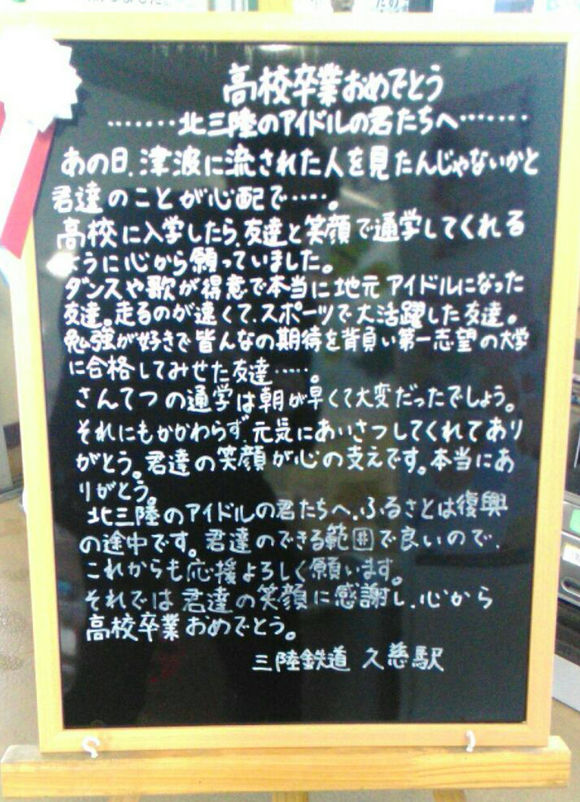 高校卒業おめでとう
・・・・・・・北三陸のアイドルの君たちへ・・・・・・・
あの日、津波に流された人を見たんじゃないかと
君達のことが心配で・・・・・。
高校に入学したら、友達と笑顔で通学してくれる
ように心から願っていました。
ダンスや歌が得意で本当に地元アイドルになった
友達。走るのが速くて、スポーツで大活躍した友達。
勉強が好きで皆んなの期待を背負い第一志望の大学
に合格してみせた友達・・・・・。
さんてつの通学は朝が早くて大変だったでしょう。
それにもかかわらず、元気にあいさつしてくれてあり
がとう。君達の笑顔が心の支えです。本当にあ
りがとう。
北三陸のアイドルの君たちへ、ふるさとは復興
の途中です。君達のできる範囲で良いので、
これからも応援よろしく願います。
それでは君達の笑顔に感謝し、心から
高校卒業おめでとう。
三陸鉄道 久慈駅